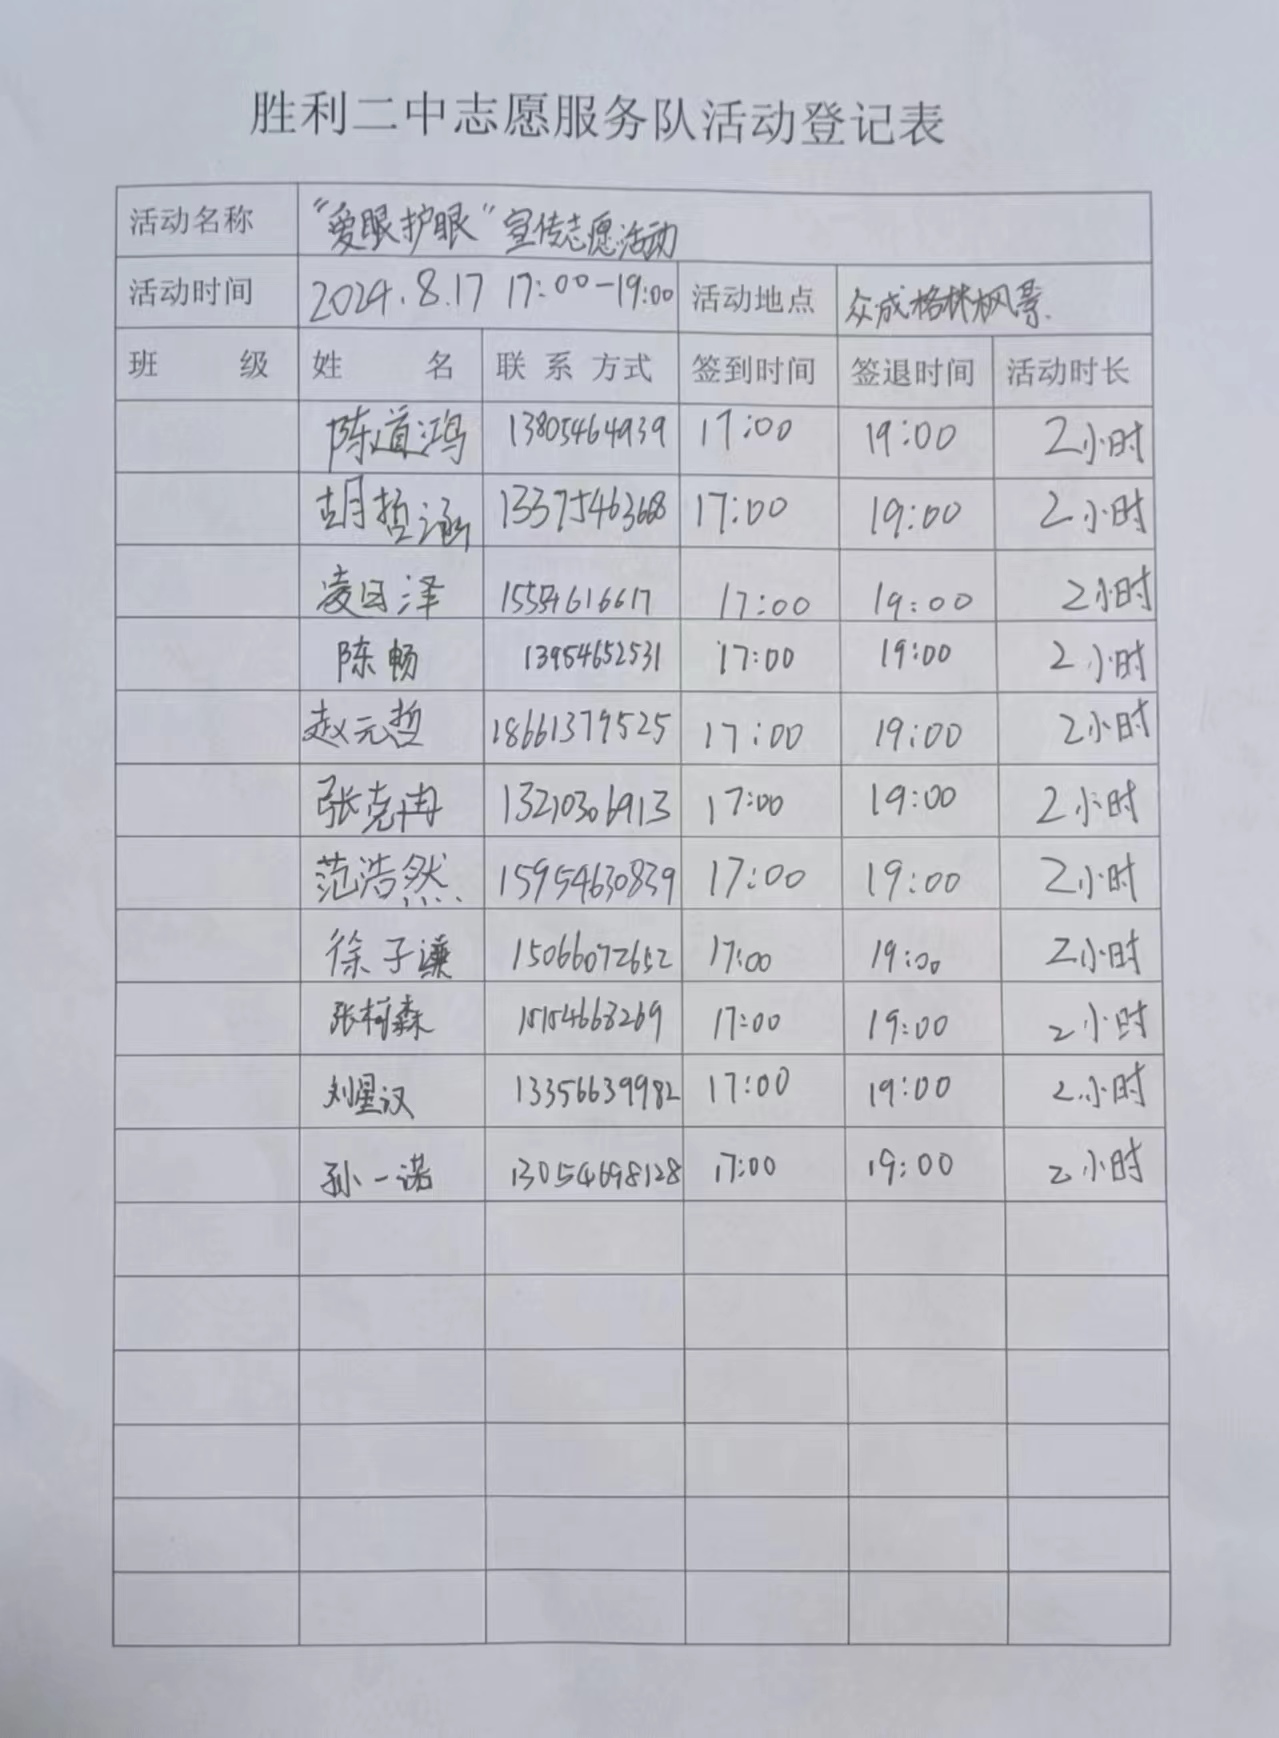 胜利二中志愿服务队活动登记表
活动名称 “爱眼护眼”宣传志愿活动
活动时间 2024.8.17 17:00-19:00 活动地点 众成格林枫景.
班 级 姓 名 联系方式 签到时间 签退时间 活动时长
陈道鸿 13805464939 17:00 19:00 2小时
胡哲涵 13375463668 17:00 19:00 2小时
凌日泽 17:00 19:00 2小时
陈畅 13954652531 17:00 19:00 2小时
赵元哲 18661379525 17:00 19:00 2小时
张克冉 13210306913 17:00 19:00 2小时
范浩然 15954630839 17:00 19:00 2小时
徐子谦 15066072652 17:00 19:00 2小时
张柯森 15154668269 17:00 19:00 2小时
刘星汉 13356639982 17:00 19:00 2小时
孙一诺 13054698128 17:00 19:00 2小时